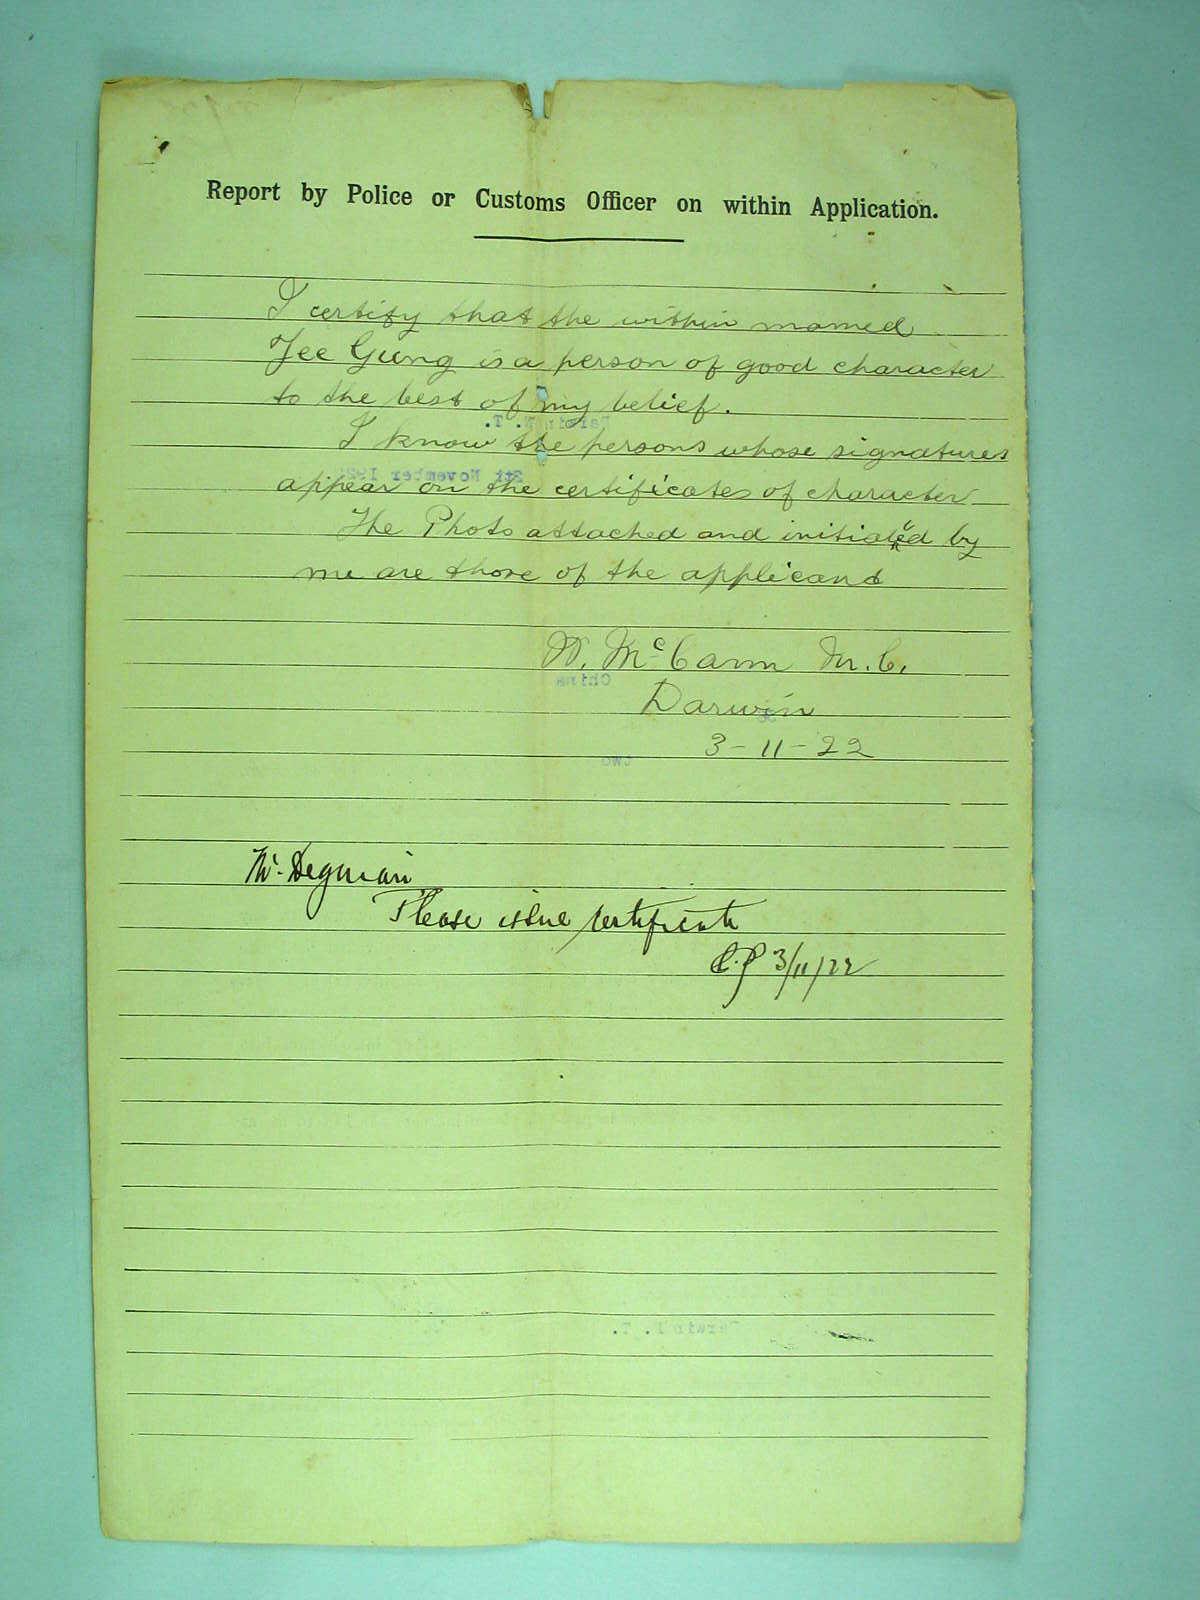 Report by Police or Customs Officer on within Application.
I certify that the within named
Yee Gung is a person of good character
to the best of my belief.
I know the persons whose signatures
appear on the certificates of character
The Photo attached and initialed by
me are those of the applicant
W. McCann M.C.
Darwin
3-11-22
Mr.
Please issue certificate
3/11/22